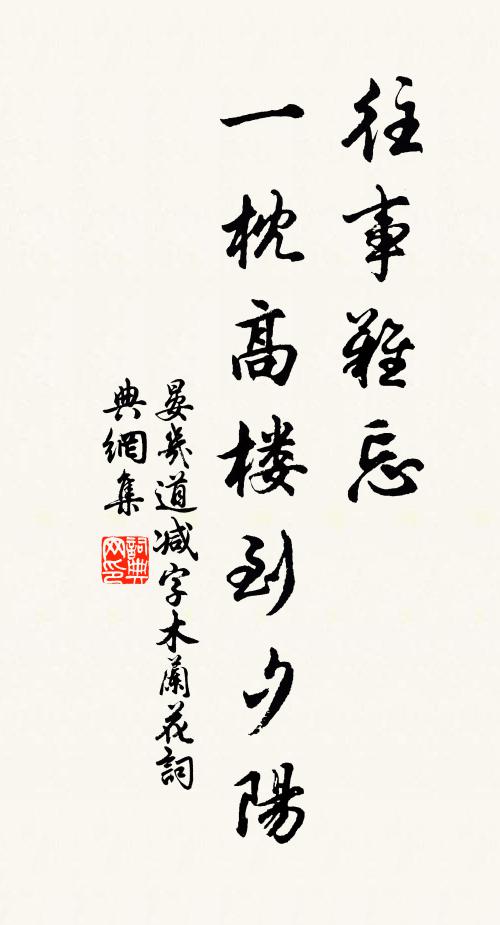 往事難忘
一枕高楼到夕陽
晏幾道減字木蘭花詞
典網集
詞典
网印